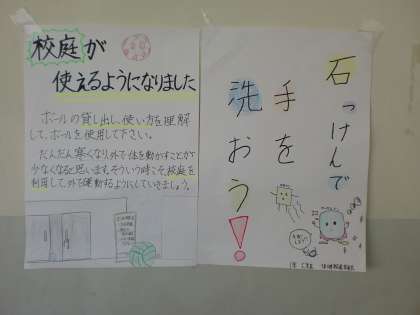 校庭が
使えるようになりました
ボールの貸し出し、使い方を理解
して、ボールを使用して下さい。
だんだん寒くなり、外で体を動かすことが
少なくなると思います。そういう時こそ、校庭を
利用して、外で運動するようにしていきましょう。
石っけんで
手を
洗おう!